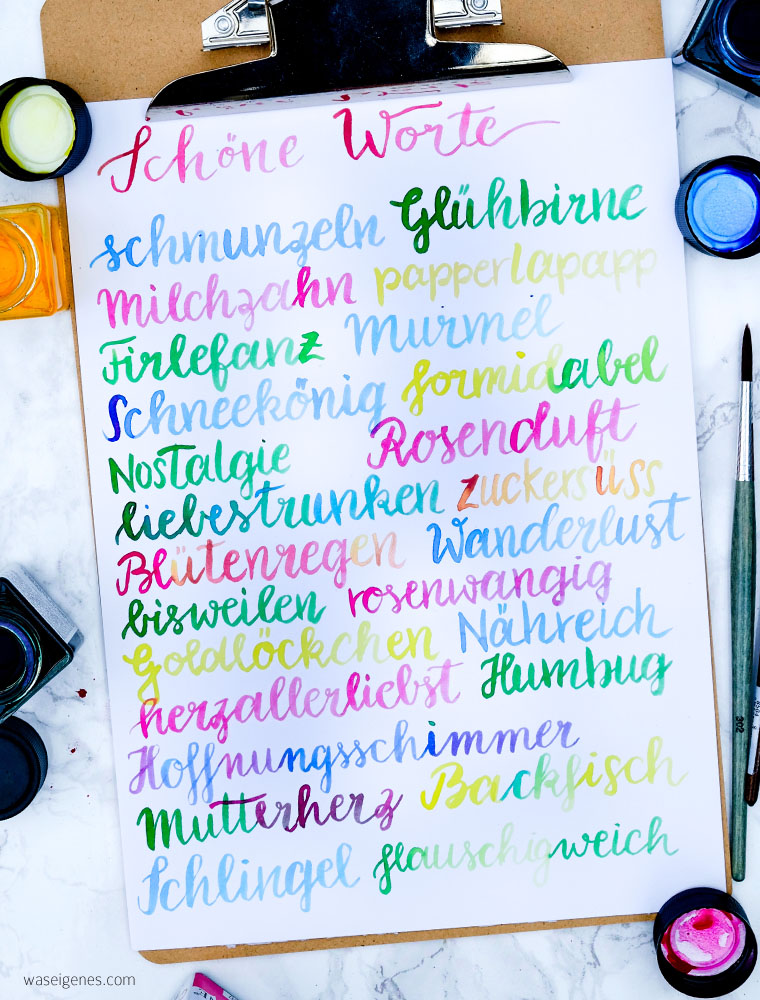 Schöne Worte
schmunzeln Glühbirne
Milchzahn papperlapapp
Firlefanz Murmel
Schneekönig formidabel
Nostalgie Rosenduft
liebestrunken zuckersüss
Blütenregen Wanderlust
bisweilen rosenwangig
Goldlöckchen Nähreich
herzallerliebst Humbug
Hoffnungsschimmer
Mutterherz Backfisch
Schlingel flauschigweich
302
waseigenes.com